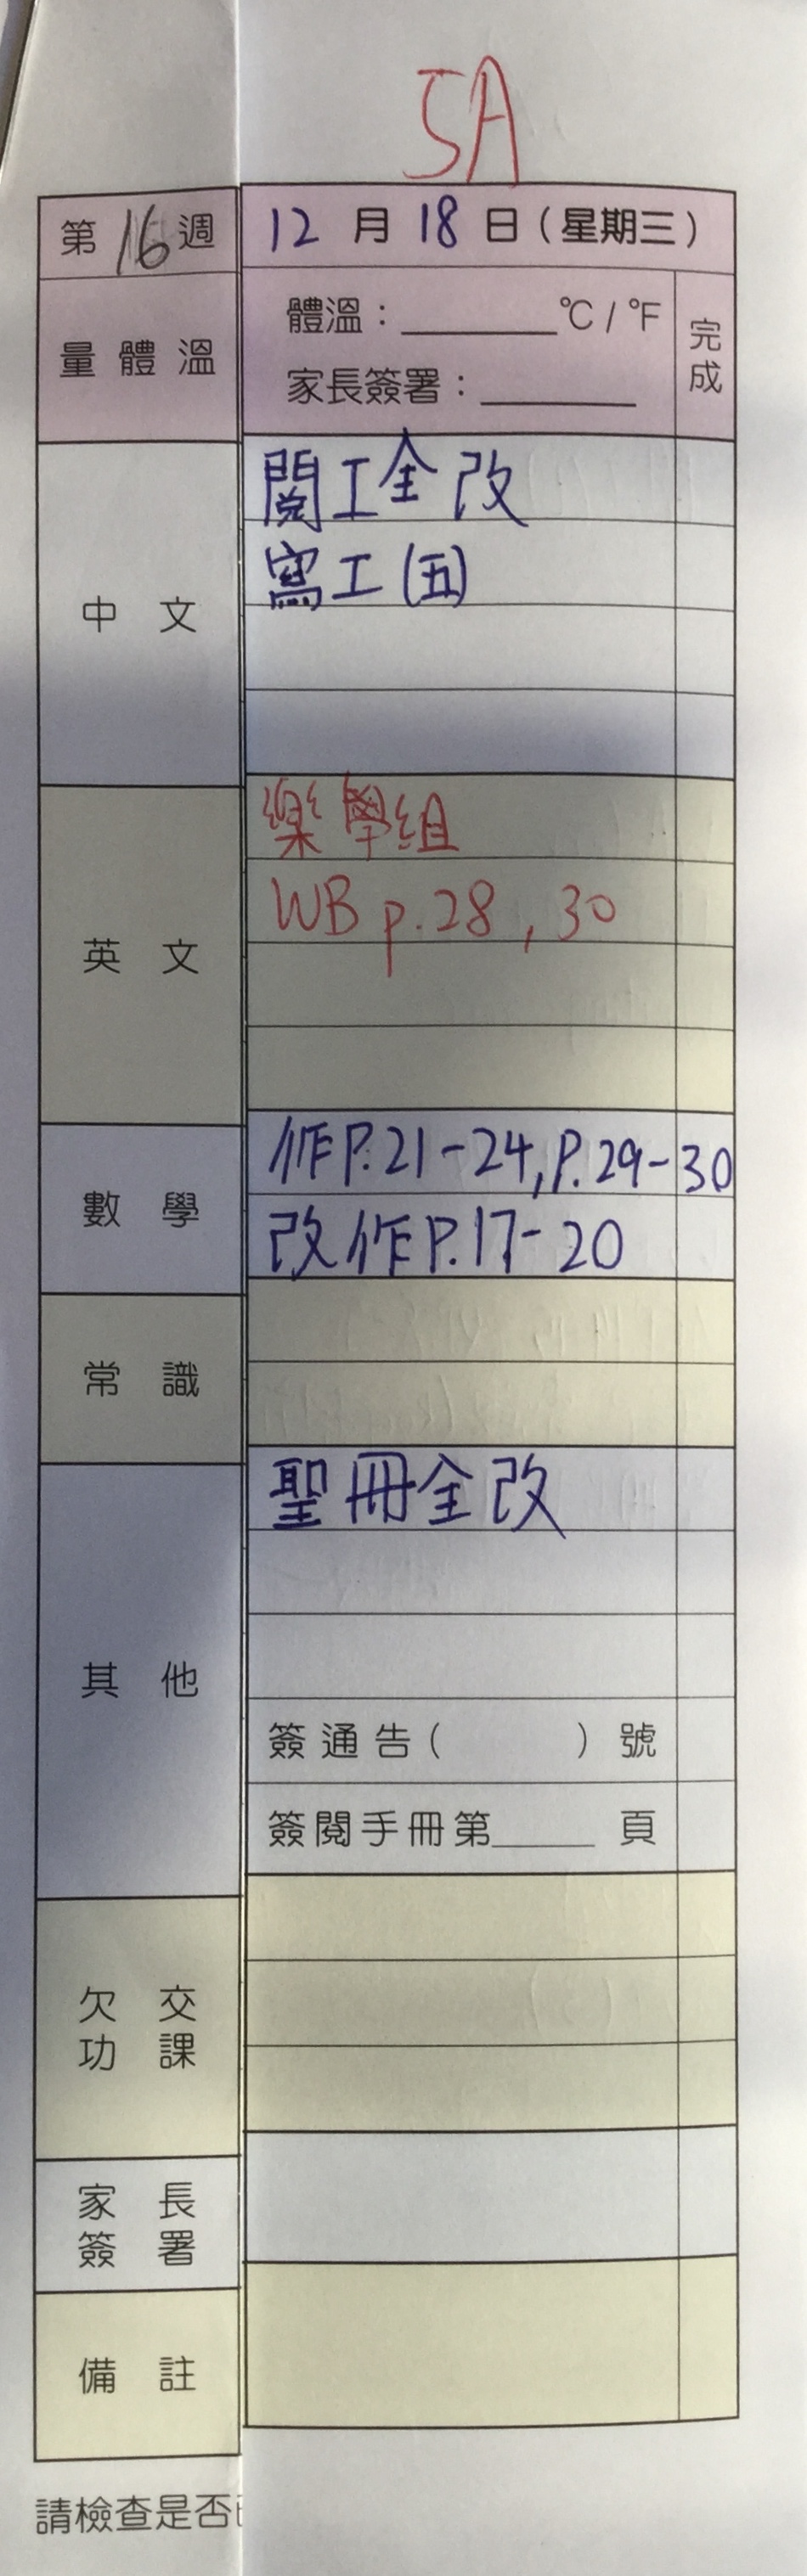 5A
第16週 12月18日(星期三)
量體溫
體溫：________°C / °F
家長簽署：________
完成
中文
閱工全改
寫工(五)
英文
樂學組
WB p.28, 30
數學
作P.21-24, P.29-30
改作P.17-20
常識
其他
聖冊全改
簽通告( )號
簽閱手冊第_____頁
欠交
功課
家長
簽署
備註
請檢查是否